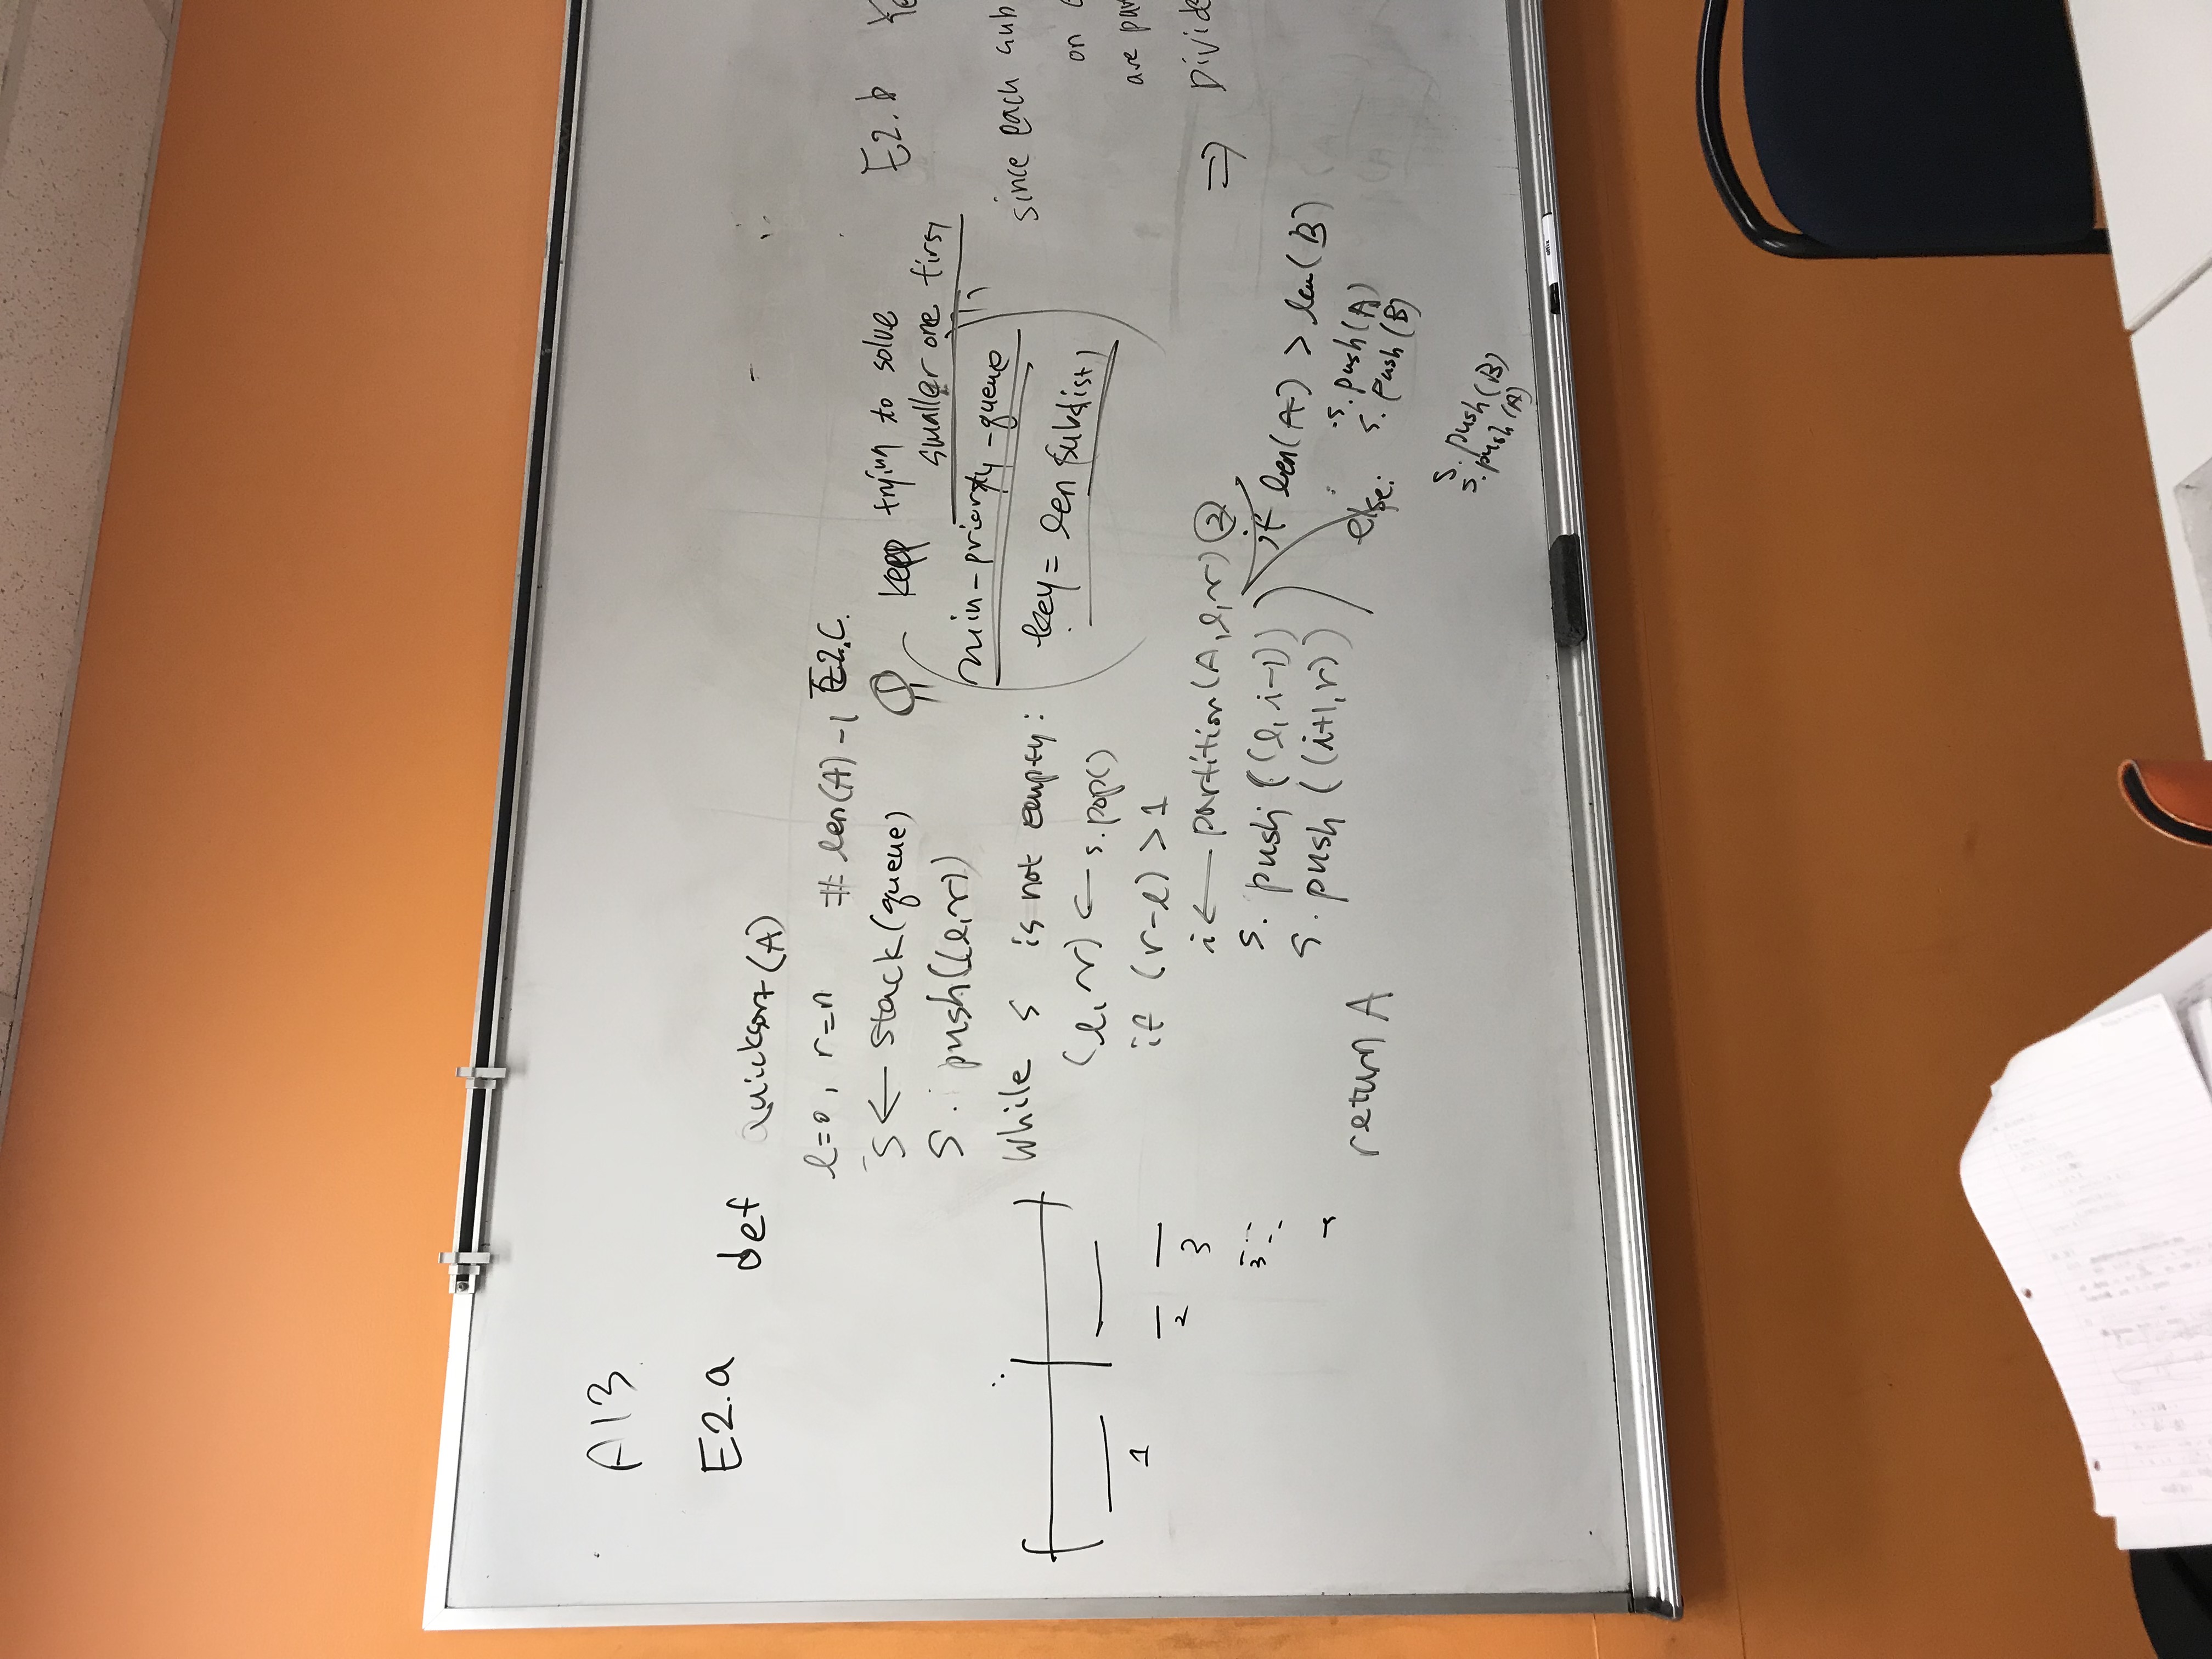 A13
E2.a
def quicksort(A)
l=0, r=n # len(A)-1
s ← stack(queue)
s. push((l,r))
While s is not empty:
(l,r) ← s.pop()
if (r-l) > 1
i ← partition(A,l,r) ②
s. push((l, i-1))
s. push((i+1, r))
return A
1
2 3
3
E2.C.
① keep trying to solve
smaller one first
min-priority-queue
key = len(sublist)
if len(A) > len(B)
s.push(A)
s. push(B)
else:
s. push(B)
s.push(A)
E2.b
since each sub
on
are
⇒ Divide